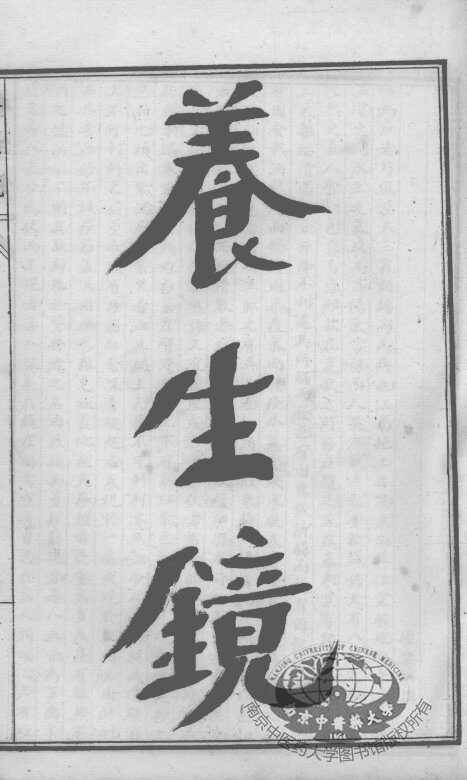 養生鏡
NANJING UNIVERSITY OF CHINESE MEDICINE
南京中醫藥大學
1954
南京中医药大学图书馆版权所有